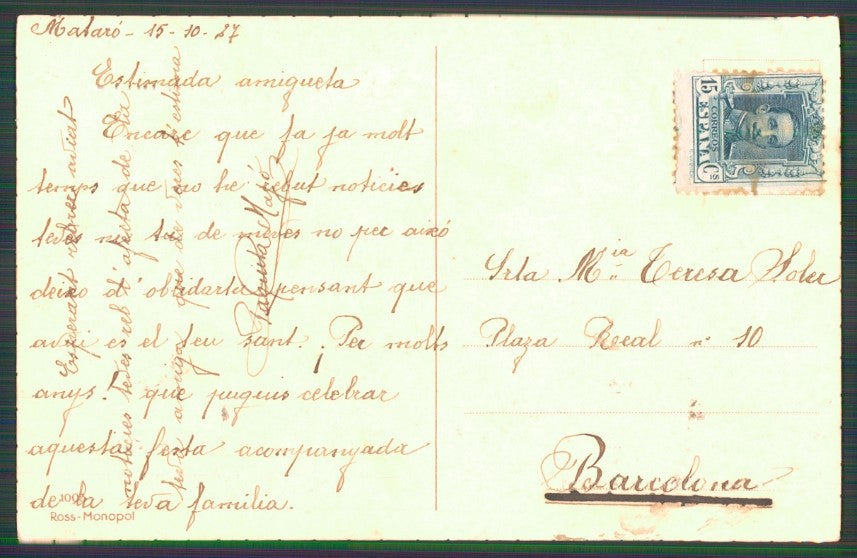 Mataró - 15 - 10 - 27
Estimada amigueta
Encare que fa ja molt
temps que no he rebut noticies
teves ni tu de meves no per aixó
deixo d'obidarta pensant que
avui es el teu sant. ¡Per molts
anys! que puguis celebrar
aquesta festa acompanyada
de la teva familia.
Esperant rebrer aviat
noticies teves reb l'afecta de ta
teva amiga que de veres t'estima
Paquita
1009
Ross-Monopol
15 ESPAÑA Cs
CORREOS
Srta Mª Teresa Soler
Plaza Real nº 10
Barcelona